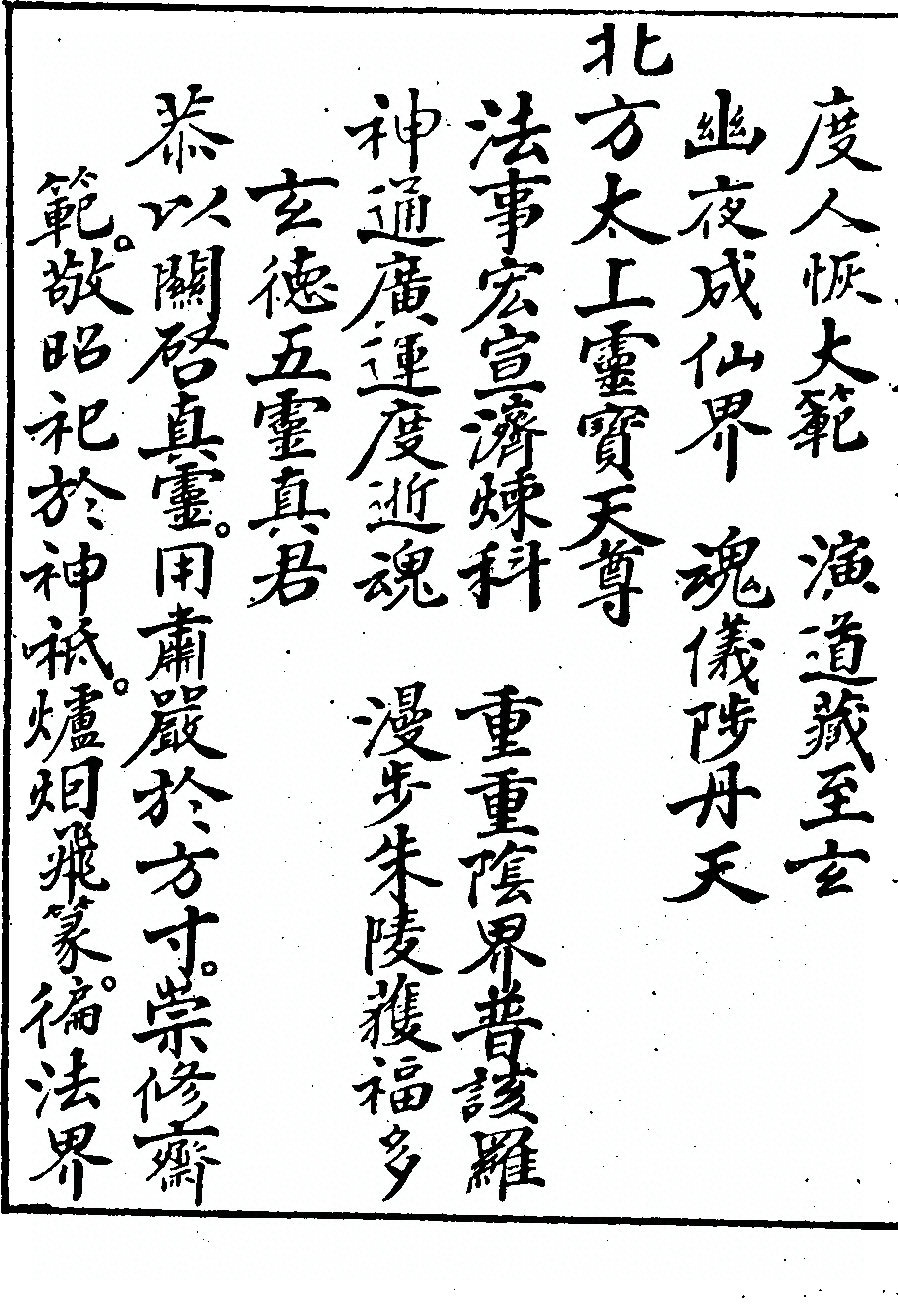 度人恢大範　演道藏至玄
幽夜成仙界　魂儀陟丹天
北方太上靈寶天尊
法事宏宣濟煉科　重重陰界普該羅
神通廣運度逝魂　漫步朱陵獲福多
玄德五靈真君
恭以關啓真靈。用肅嚴於方寸。崇修齋
範。敬昭祀於神祗。爐烟飛篆。徧法界